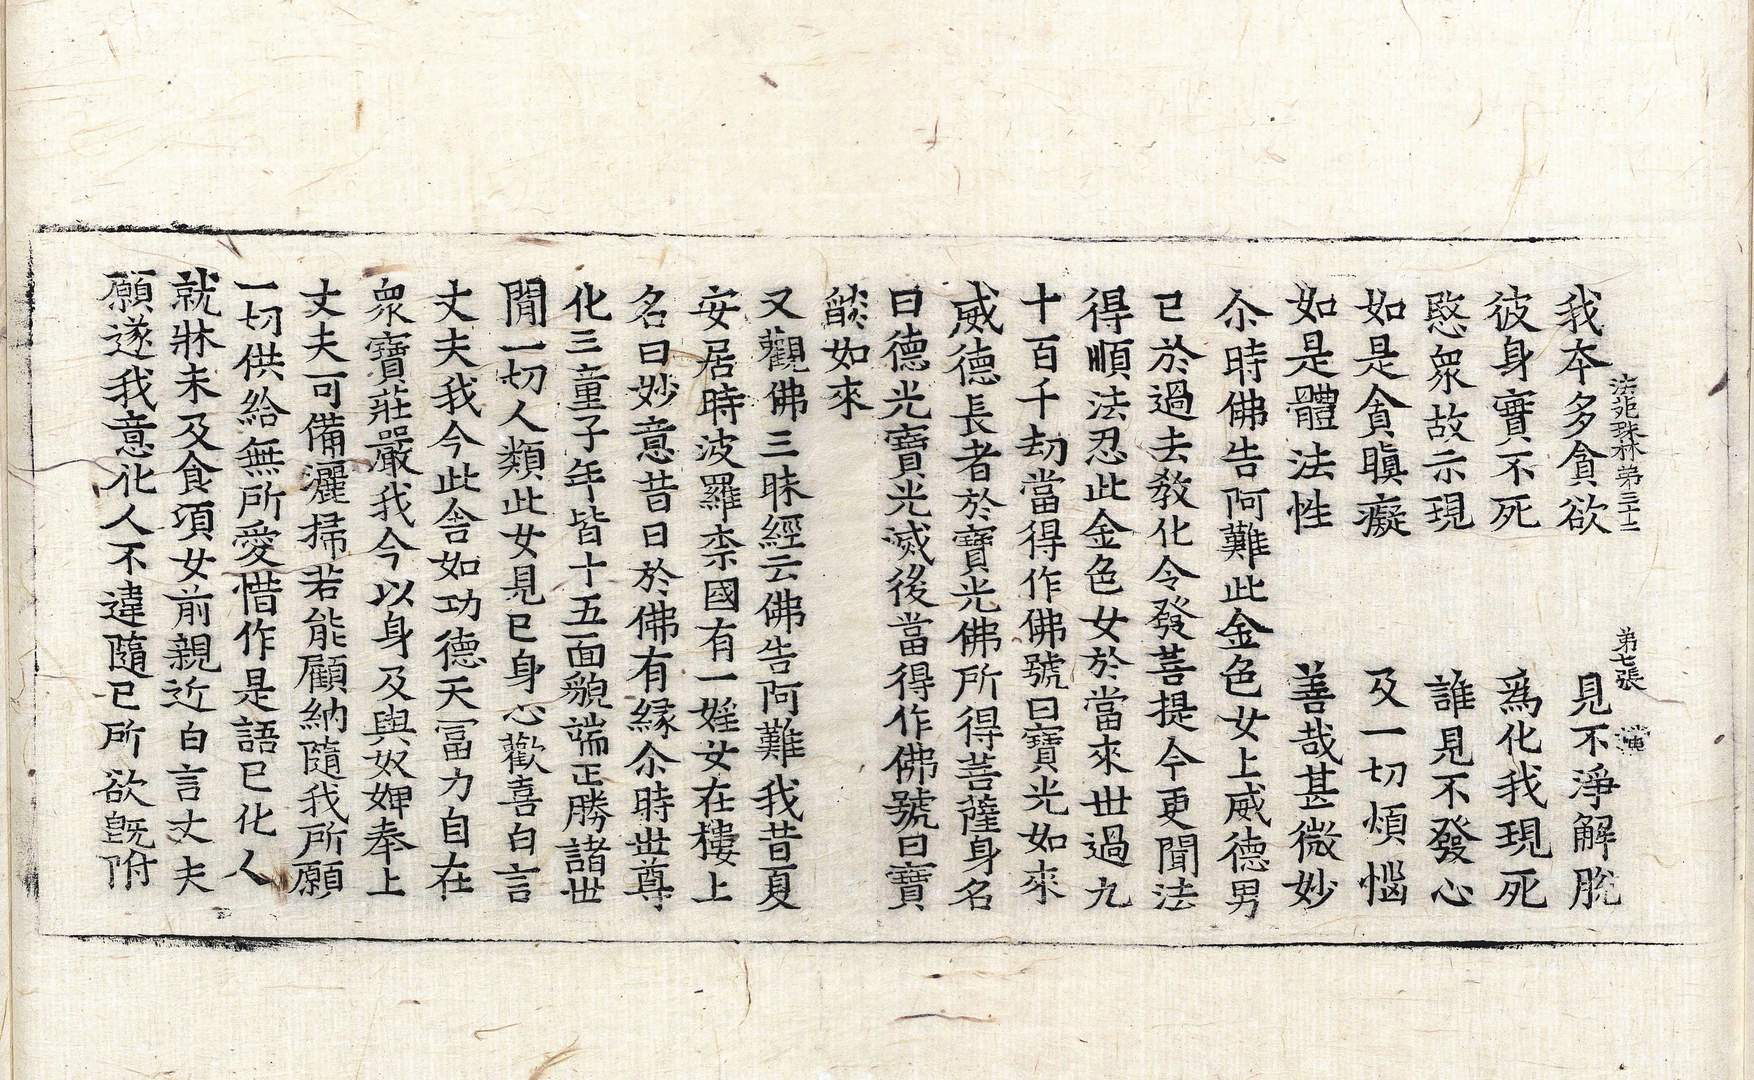 我本多貪欲　見不淨解脫
法苑珠林第三十三　第七張　潭
彼身實不死　爲化我現死
愍衆故示現　誰見不發心
如是貪瞋癡　及一切煩惱
如是體法性　善哉甚微妙
尒時佛告阿難此金色女上威德男
已於過去敎化令發菩提今更聞法
得順法忍此金色女於當來世過九
十百千劫當得作佛號曰寶光如來
威德長者於寶光佛所得菩薩身名
曰德光寶光滅後當得作佛號曰寶
焰如來
又觀佛三昧經云佛告阿難我昔夏
安居時波羅柰國有一婬女在樓上
名曰妙意昔日於佛有緣尒時世尊
化三童子年皆十五面貌端正勝諸世
閒一切人類此女見已身心歡喜白言
丈夫我今此舍如功德天冨力自在
衆寶莊嚴我今以身及與奴婢奉上
丈夫可備灑掃若能顧納隨我所願
一切供給無所愛惜作是語已化人
就牀未及食頃女前親近白言丈夫
願遂我意化人不違隨已所欲旣附